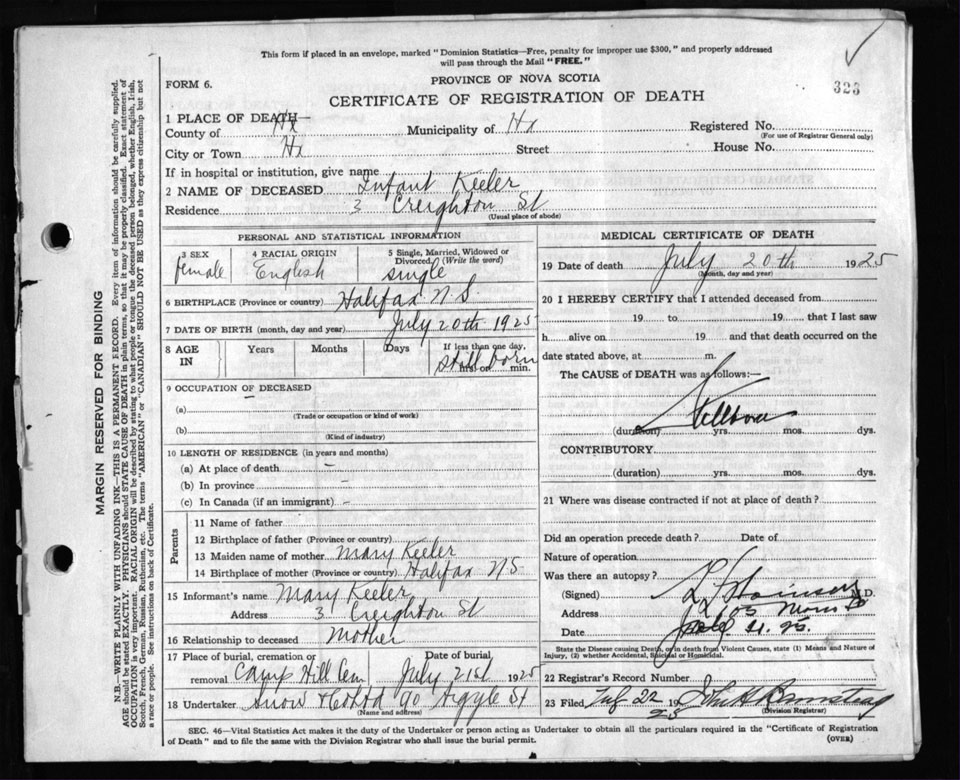 This form if placed in an envelope, marked " Dominion Statistics—Free, penalty for improper use $300, " and properly addressed
will pass through the Mail "FREE."
323
FORM 6.
PROVINCE OF NOVA SCOTIA
CERTIFICATE OF REGISTRATION OF DEATH
1 PLACE OF DEATH—
County of Hx Municipality of Hx Registered No.
(For use of Registrar General only)
City or Town Hx Street House No.
If in hospital or institution, give name
2 NAME OF DECEASED Infant Keeler
Residence 3 Creighton St
(Usual place of abode)
PERSONAL AND STATISTICAL INFORMATION
3 SEX 4 RACIAL ORIGIN 5 Single, Married, Widowed or
Divorced? (Write the word)
female English single
6 BIRTHPLACE (Province or country) Halifax N.S.
7 DATE OF BIRTH (month, day and year) July 20th 1925
8 AGE IN Years Months Days If less than one day,
hrs. or min.
still born
9 OCCUPATION OF DECEASED
—
(a)
(Trade or occupation or kind of work)
(b)
(Kind of industry)
10 LENGTH OF RESIDENCE (in years and months)
(a) At place of death —
(b) In province –
(c) In Canada (if an immigrant) –
Parents
11 Name of father
12 Birthplace of father (Province or country)
13 Maiden name of mother Mary Keeler
14 Birthplace of mother (Province or country) Halifax NS
15 Informant's name Mary Keeler
Address 3 Creighton St
16 Relationship to deceased Mother
17 Place of burial, cremation or removal Date of burial
Camp Hill Cem July 21st 1925
18 Undertaker Snow 90 Argyle St
(Name and address)
MEDICAL CERTIFICATE OF DEATH
19 Date of death July 20th 1925
(Month, day and year)
20 I HEREBY CERTIFY that I attended deceased from
19 to 19 that I last saw
h alive on 19 and that death occurred on the
date stated above, at m.
The CAUSE of DEATH was as follows:—
Stillborn
(duration) yrs. mos. dys.
CONTRIBUTORY
(duration) yrs. mos. dys.
21 Where was disease contracted if not at place of death?
Did an operation precede death? Date of
Nature of operation
Was there an autopsy?
(Signed) M.D.
Address
Date
State the Disease causing Death, or in death from Violent Causes, state (1) Means and Nature of
Injury, (2) whether Accidental, Suicidal or Homicidal.
22 Registrar's Record Number
23 Filed July 22 19 25
(Division Registrar)
SEC. 46—Vital Statistics Act makes it duty of the Undertaker or person acting as Undertaker to obtain all the particulars required in the "Certificate of Registration
of Death" and to file the same with the Division Registrar who shall issue the burial permit.
(OVER)
MARGIN RESERVED FOR BINDING
N.B.—WRITE PLAINLY WITH UNFADING INK—THIS IS A PERMANENT RECORD. Every item of information should be carefully supplied.
AGE should be stated EXACTLY. PHYSICIANS should STATE CAUSE OF DEATH in plain terms, so that it may be properly classified. Exact statement of
OCCUPATION is very important. RACIAL ORIGIN will be described by stating to what people or tongue the deceased person belonged, whether English, Irish,
Scotch, French, German, Russian, Ruthenian, etc. The terms "AMERICAN" or "CANADIAN" SHOULD NOT BE USED as they express citizenship but not
a race or people. See instructions on back of Certificate.